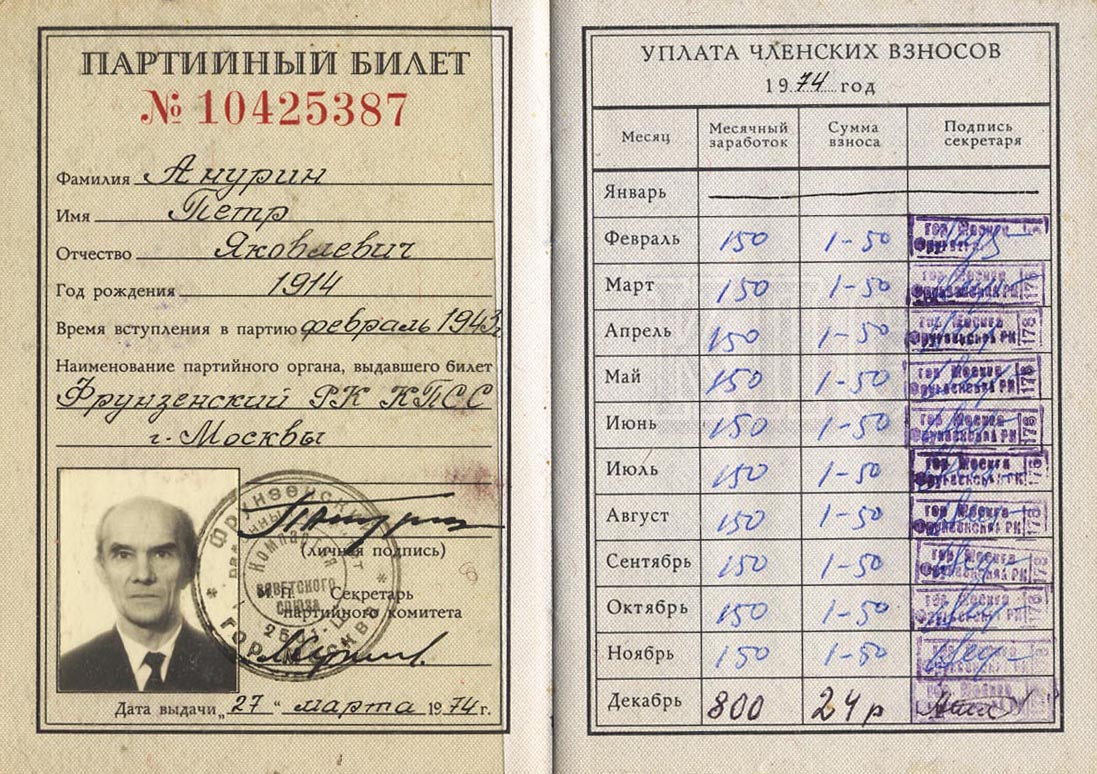 ПАРТИЙНЫЙ БИЛЕТ
№ 10425387
Фамилия Анурин
Имя Петр
Отчество Яковлевич
Год рождения 1914
Время вступления в партию февраль 1943 г
Наименование партийного органа, выдавшего билет
Фрунзенский РК КПСС
г. Москвы
(личная подпись)
М. П. Секретарь
партийного комитета
Дата выдачи „27“ марта 1974 г.
УПЛАТА ЧЛЕНСКИХ ВЗНОСОВ
1974 год
Месяц Месячный заработок Сумма взноса Подпись секретаря
Январь
Февраль 150 1-50
Март 150 1-50
Апрель 150 1-50
Май 150 1-50
Июнь 150 1-50
Июль 150 1-50
Август 150 1-50
Сентябрь 150 1-50
Октябрь 150 1-50
Ноябрь 150 1-50
Декабрь 800 24 р